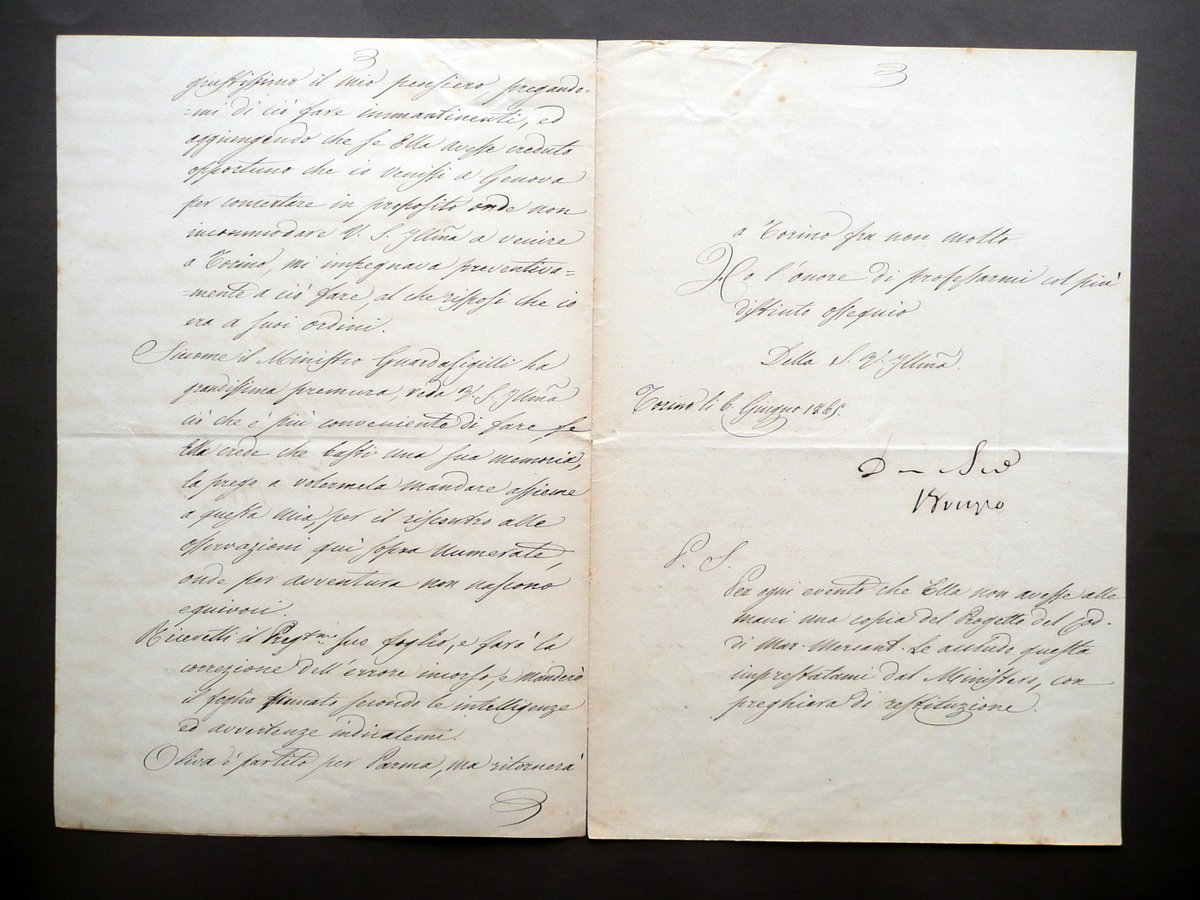 giustissimo il mio pensiero pregando-
-mi di ciò fare immantinenti, ed
aggiungendo che se Ella avesse creduto
opportuno che io venissi a Genova
per concertare in proposito onde non
incommodare V. S. Illma a venire
a Torino, mi impegnava preventiva-
-mente a ciò fare al che risposi che io
era a suoi ordini.
Siccome il Ministro Guardasigilli ha
grandissima premura, veda V. S. Illma
ciò che è più conveniente di fare se
Ella crede che basti una sua memoria,
la prego a volermela mandare assieme
a questa mia per il riscontro alle
osservazioni quì sopra numerate,
onde per avventura non nascono
equivoci.
Ricevetti il Pregmo suo foglio, e farò la
correzione dell'errore incorso, e manderò
il foglio firmato secondo le intelligenze
ed avvertenze indicatemi.
Oliva è partito per Parma, ma ritornerà
a Torino fra non molto
Ho l'onore di professarmi col più
distinto ossequio
Della S. V. Illma.
Torino li 6 Giugno 1865.
P. S.
Per ogni evento che Ella non avesse alle
mani una copia del Progetto del Cod.
di Mar. Mercant. Le accludo questa
imprestatami dal Ministero, con
preghiera di restituzione.